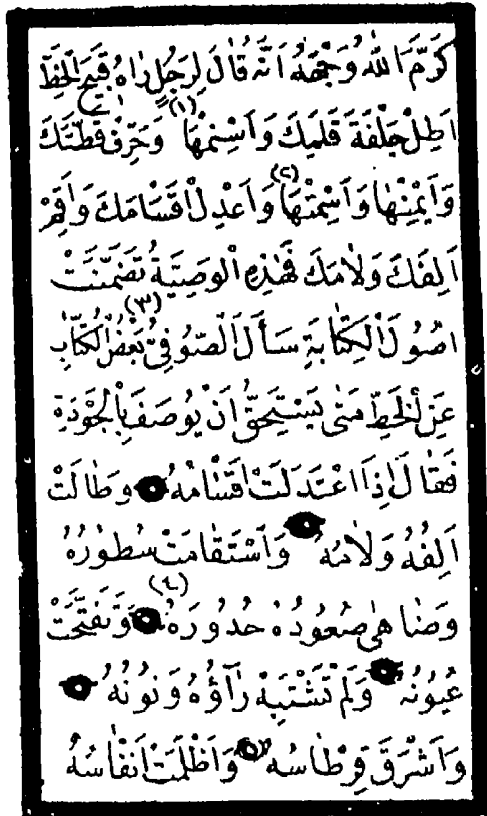 كَرَّمَ اللهُ وَجْهَهُ اَنَّهُ قَالَ لِرَجُلٍ رَاٰهُ قَبِيحَ الْخَطِّ
اَطِلْ جِلْفَةَ قَلَمِكَ وَاَسْمِنْهَا (١) وَحَرِّفْ قَطَّتَكَ (٢)
وَاَيْمِنْهَا وَاَسْمِتْهَا (٢) وَاَعْدِلْ اَقْسَامَكَ وَاَقِمْ
اَلِفَكَ وَلَامَكَ فَهٰذِهِ الْوَصِيَّةُ تَضَمَّنَتْ
اُصُولَ الْكِتَابَةِ (٣) سَأَلَ الصُّوفِيُّ بَعْضُ الْكُتَّابِ
عَنِ الْخَطِّ مَتٰى يَسْتَحِقُّ اَنْ يُوصَفَ بِالْجَوْدَةِ
فَقَالَ اِذَا اعْتَدَلَتْ اَقْسَامُهُ وَطَالَتْ
اَلِفُهُ وَلَامُهُ وَاسْتَقَامَتْ سُطُورُهُ
وَضَاهٰى صُعُودُهُ حُدُورَهُ (٤) وَتَفَتَّحَتْ
عُيُونُهُ وَلَمْ تَشْتَبِهْ رَآؤُهُ وَنُونُهُ
وَاَشْرَقَ قِرْطَاسُهُ (٥) وَاَظْلَمَتْ اَنْقَاسُهُ